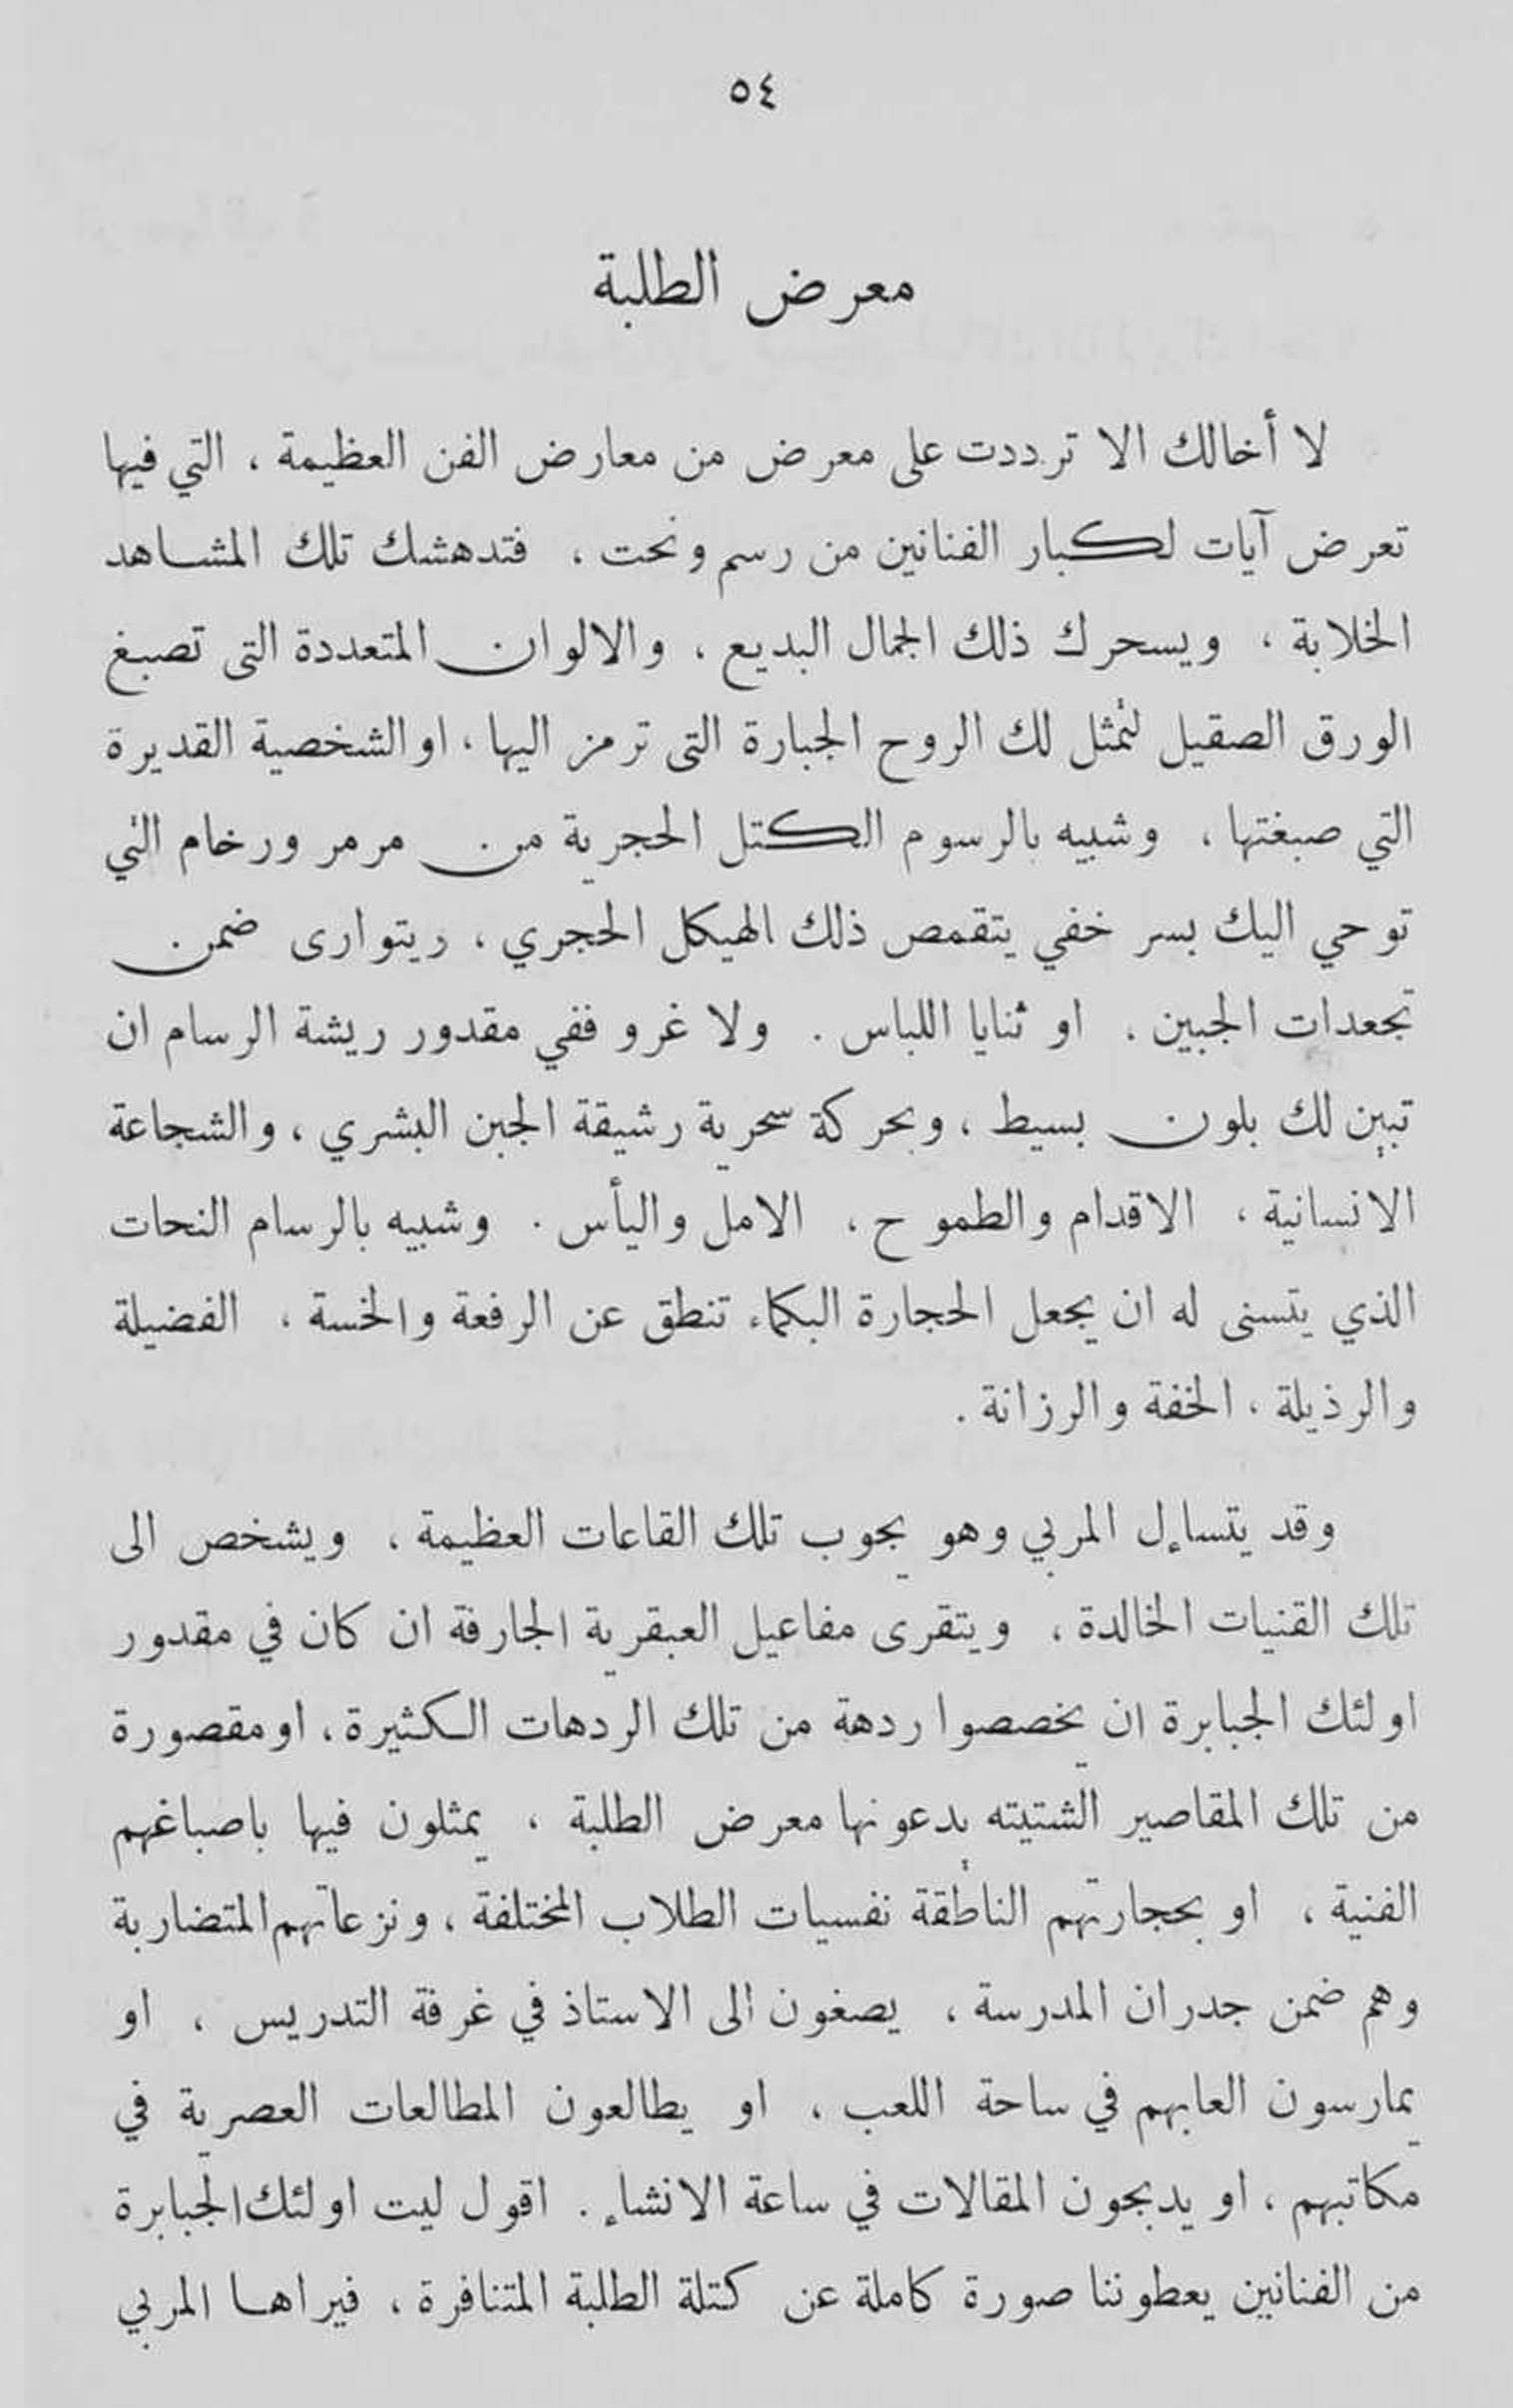 ٥٤
معرض الطلبة
لا أخالك الا ترددت على معرض من معارض الفن العظيمة ، التي فيها
تعرض آيات لكبار الفنانين من رسم ونحت ، فتدهشك تلك المشاهد
الخلابة ، ويسحرك ذلك الجمال البديع ، والالوان المتعددة التى تصبغ
الورق الصقيل لتمثل لك الروح الجبارة التى ترمز اليها ، او الشخصية القديرة
التي صبغتها ، وشبيه بالرسوم الكتل الحجرية من مرمر ورخام التي
توحي اليك بسر خفي يتقمص ذلك الهيكل الحجري ، ريتوارى ضمن
تجعدات الجبين . او ثنايا اللباس . ولا غرو ففي مقدور ريشة الرسام ان
تبين لك بلون بسيط ، وبحركة سحرية رشيقة الجبن البشري ، والشجاعة
الانسانية ، الاقدام والطموح ، الامل واليأس . وشبيه بالرسام النحات
الذي يتسنى له ان يجعل الحجارة البكماء تنطق عن الرفعة والخسة ، الفضيلة
والرذيلة ، الخفة والرزانة .
وقد يتساءل المربي وهو يجوب تلك القاعات العظيمة ، ويشخص الى
تلك القنيات الخالدة ، ويتقرى مفاعيل العبقرية الجارفة ان كان في مقدور
اولئك الجبابرة ان يخصصوا ردهة من تلك الردهات الكثيرة ، او مقصورة
من تلك المقاصير الشتيته يدعونها معرض الطلبة ، يمثلون فيها باصباغهم
الفنية ، او بحجارتهم الناطقة نفسيات الطلاب المختلفة ، ونزعاتهم المتضاربة
وهم ضمن جدران المدرسة ، يصغون الى الاستاذ في غرفة التدريس ، او
يمارسون العابهم في ساحة اللعب ، او يطالعون المطالعات العصرية في
مكاتبهم ، او يدبجون المقالات في ساعة الانشاء . اقول ليت اولئك الجبابرة
من الفنانين يعطوننا صورة كاملة عن كتلة الطلبة المتنافرة ، فيراها المربي